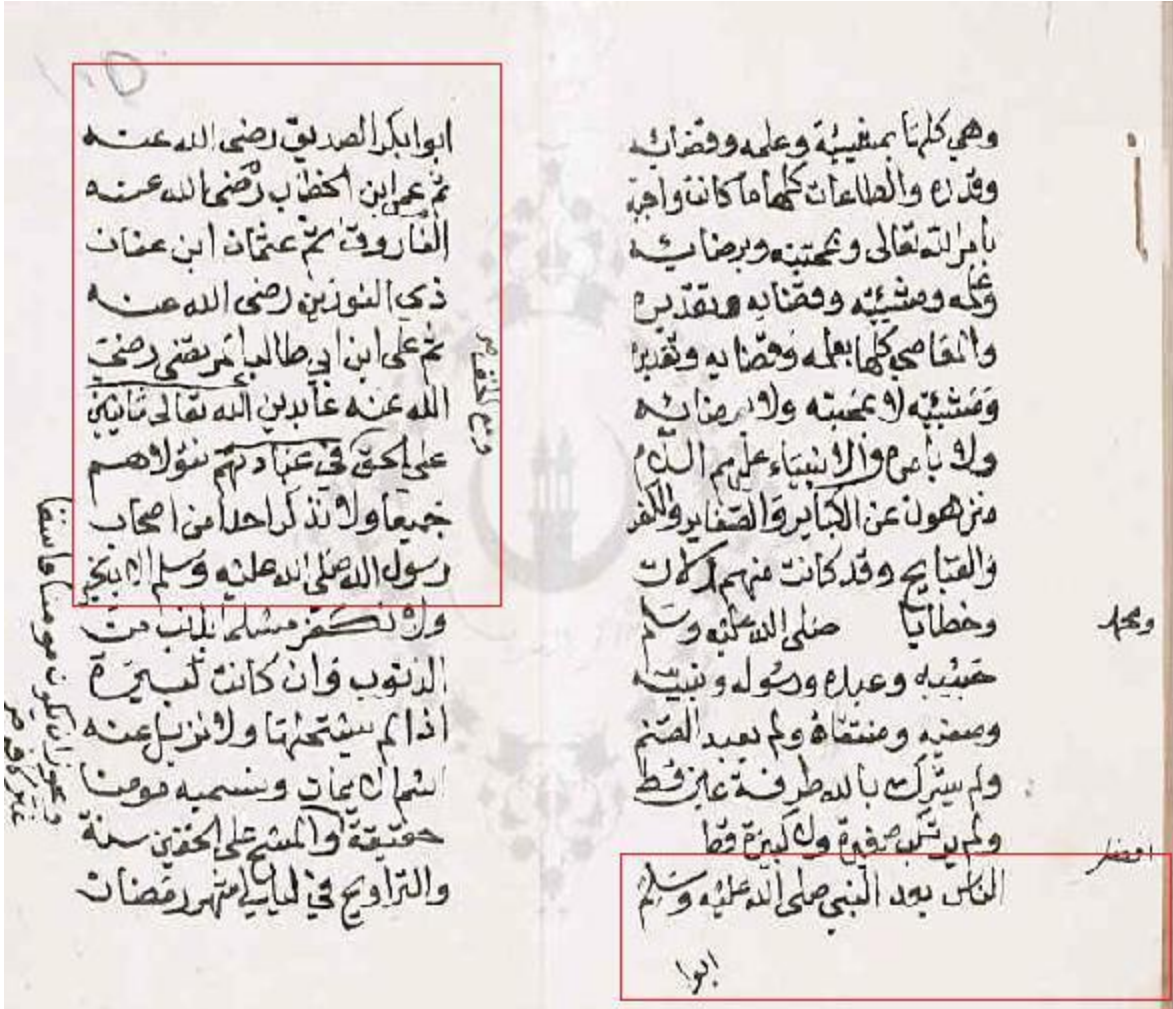 وهي كلها بمشيئة وعلمه وقضائه
وقدره والطاعات كلها ما كانت واجبة
بأمر الله تعالى وبمحبته وبرضائه
وعلمه ومشيئته وقضايه وتقديره
والمعاصي كلها بعلمه وقضايه وتقديره
ومشيئته لا بمحبته ولا برضائه
ولا بأمره والانبياء عليهم السلام
منزهون عن الكبائر والصغاير والكفر
والقبايح وقد كانت منهم زلات
وخطايا صلى الله عليه وسلم
ومحمد
حبيبه وعبده ورسوله ونبيه
وصفيه ومنتقاه ولم يعبد الصنم
ولم يشرك بالله طرفة عين قط
ولم يرتكب صغيرة ولا كبيرة قط
افضل
الناس بعد النبي صلى الله عليه وسلم
ابوا
ابوابكر الصديق رضى الله عنه
ثم عمر ابن الخطاب رضى الله عنه
الفاروق ثم عثمان ابن عفان
ذي النورين رضى الله عنه
ثم على ابن ابي طالب المرتضى رضى
الله عنه عابدين الله تعالى ثابتين
على الحق في عبادتهم نتولاهم
ومع الحق
جميعا ولا نذكر احدا من اصحاب
رسول الله صلى الله عليه وسلم الا بخير
ولا نكفر مسلما بذنب من
الذنوب وان كانت كبيرة
اذا لم يستحلها ولا نزيل عنه
اسم الايمان ونسميه مومنا
حقيقة والمسح على الخفين سنة
والتراويح في ليالي شهر رمضان
ويجوز ان يكون مومنا فاسقا
غير كافر